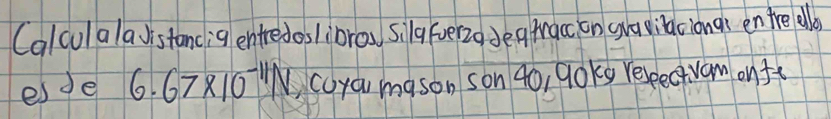 Calcula la distancia entre dos libros, si la fuerza de atracción gravitacional entre ellos
es de 6.67x10⁻¹¹N, cuya mason son 40, 90kg respectivamente